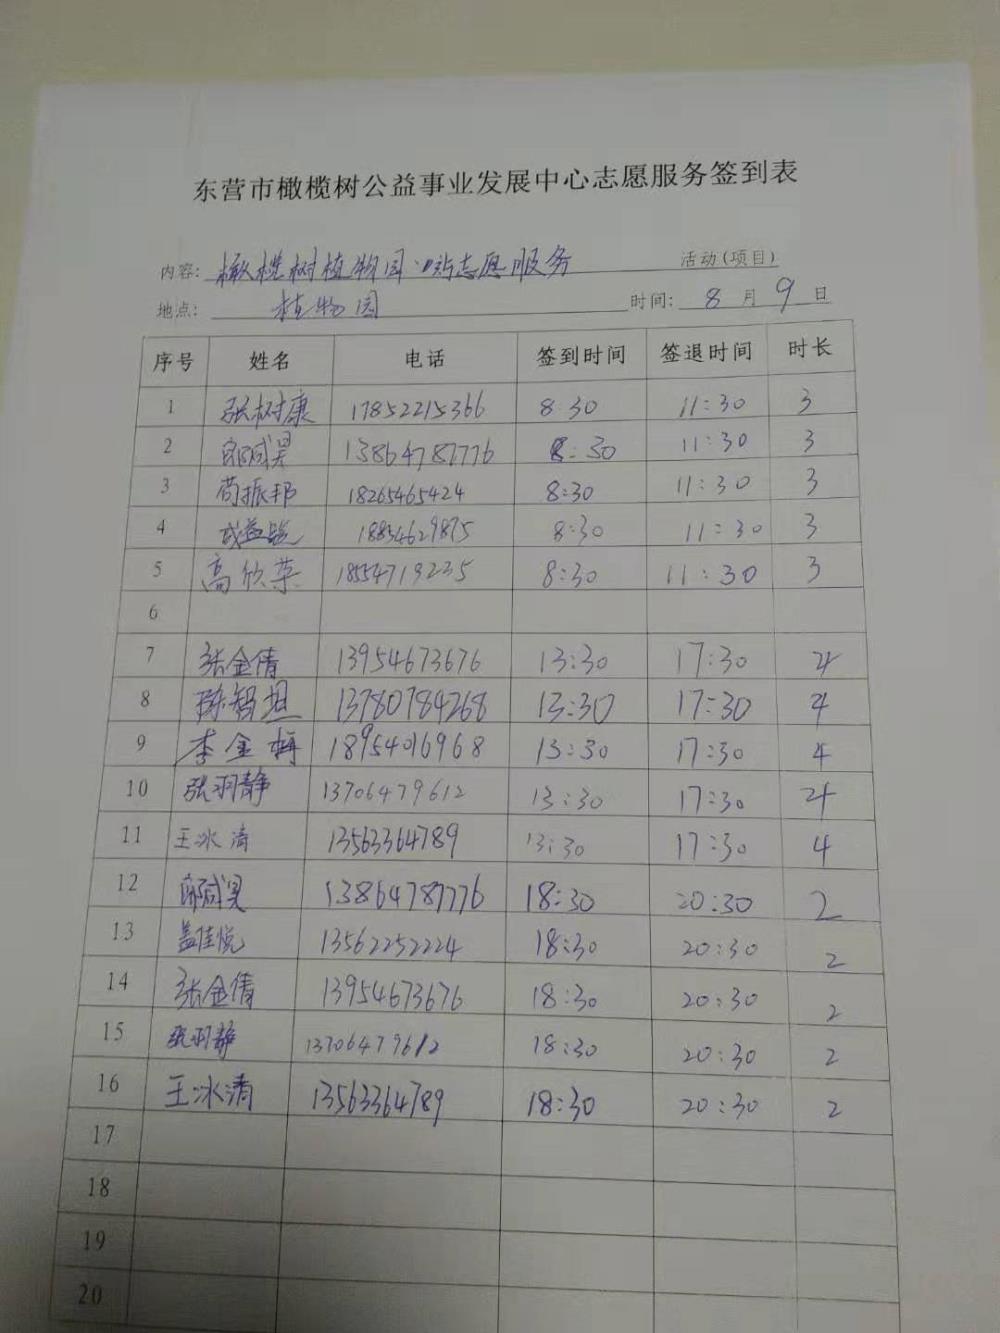 东营市橄榄树公益事业发展中心志愿服务签到表
内容: 橄榄树植物园 站志愿服务 活动(项目)
地点: 植物园 时间: 8 月 9 日
序号 姓名 电话 签到时间 签退时间 时长
1 张树康 17852215366 8:30 11:30 3
2 郎咸昊 13864787776 8:30 11:30 3
3 苟振邦 18265465424 8:30 11:30 3
4 18854629875 8:30 11:30 3
5 高欣荣 18554719235 8:30 11:30 3
6
7 张金倩 13954673676 13:30 17:30 4
8 陈智旭 13780784268 13:30 17:30 4
9 李金梅 18954016968 13:30 17:30 4
10 张羽静 13706479612 13:30 17:30 4
11 王冰清 13563364789 13:30 17:30 4
12 郎咸昊 13864787776 18:30 20:30 2
13 盖佳悦 13562252224 18:30 20:30 2
14 张金倩 13954673676 18:30 20:30 2
15 张羽静 13706479612 18:30 20:30 2
16 王冰清 13563364789 18:30 20:30 2
17
18
19
20